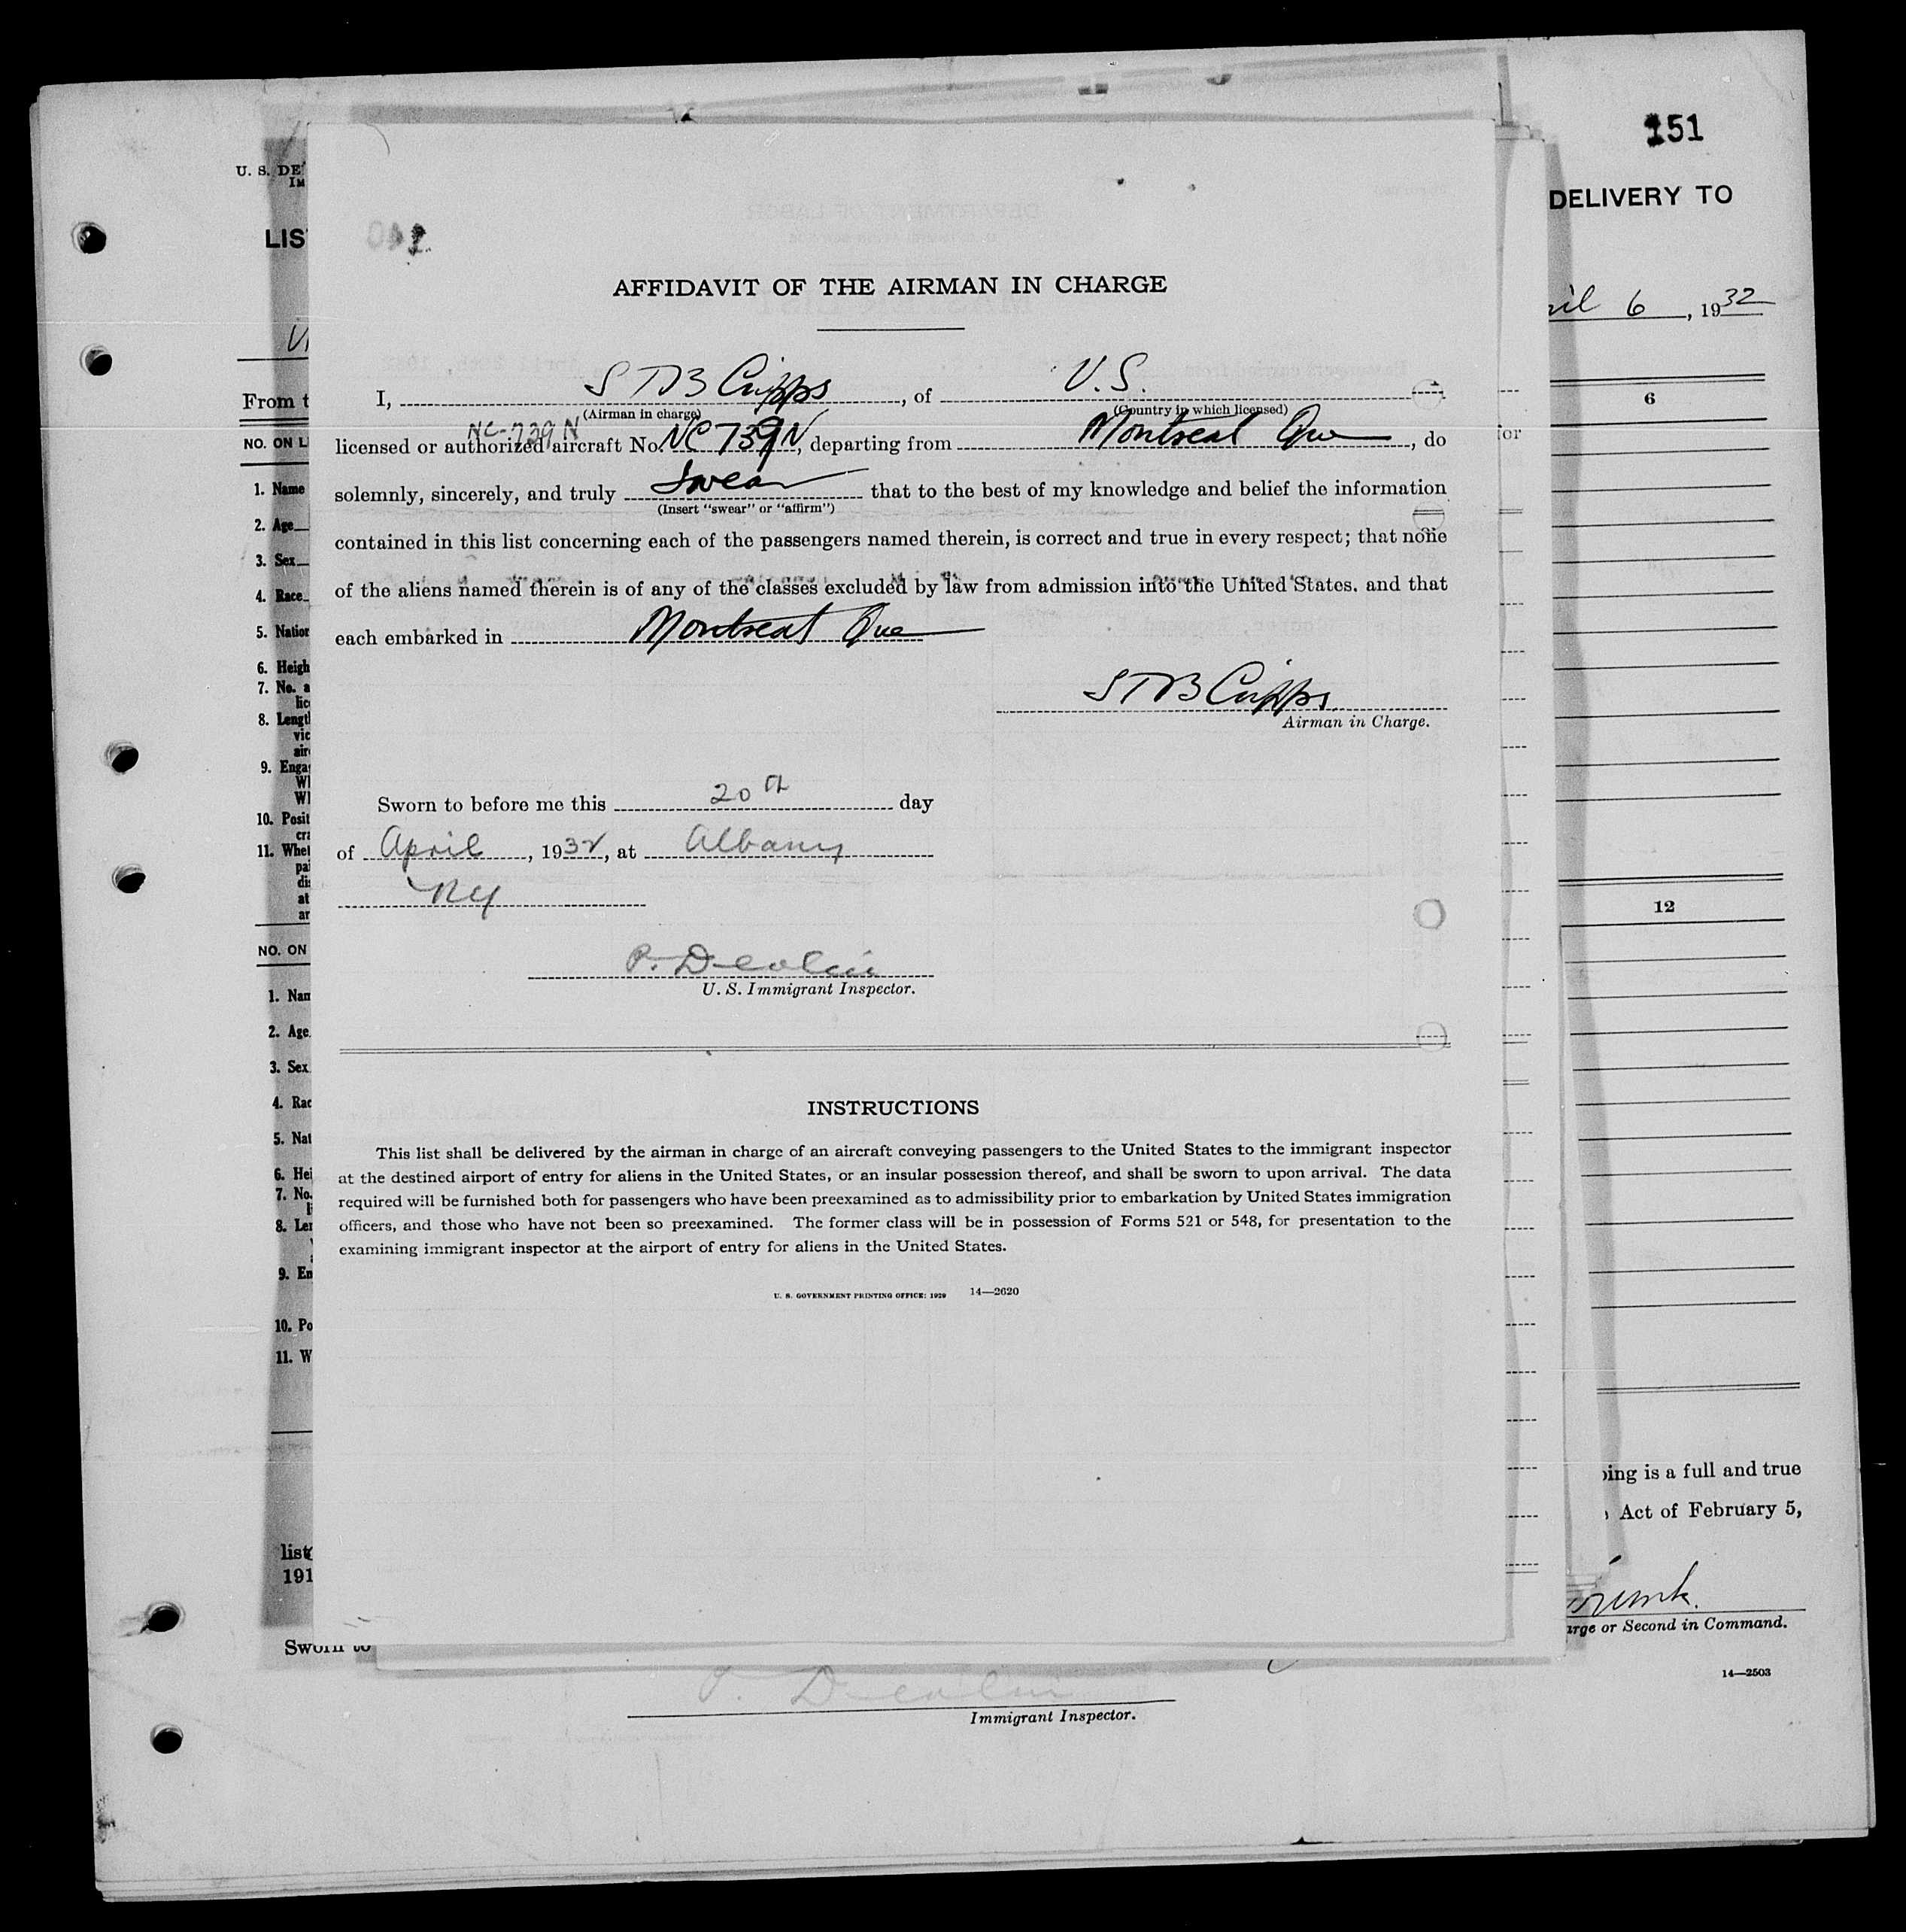 151
U. S. DE
IM
DELIVERY TO
LIS
AFFIDAVIT OF THE AIRMAN IN CHARGE
ril 6, 1932
I, S T B Cripps, of V. S.
(Airman in charge) (Country in which licensed)
From t
6
NC-739 N
NO. ON L
licensed or authorized aircraft No. NC 739N, departing from Montreal Que, do
for
1. Name
solemnly, sincerely, and truly Swear that to the best of my knowledge and belief the information
(Insert "swear" or "affirm")
2. Age
contained in this list concerning each of the passengers named therein, is correct and true in every respect; that none
3. Sex
of the aliens named therein is of any of the classes excluded by law from admission into the United States. and that
4. Race
each embarked in Montreal Que
5. Nation
6. Heigh
7. No. a
lic
S T B Cripps
Airman in Charge.
8. Lengt
vic
air
9. Enga
Wh
Wh
Sworn to before me this 20th day
10. Posit
cra
of April, 1932, at Albany
11. Whet
pa
di
at
ar
NY
12
NO. ON
P. Devlin
U. S. Immigrant Inspector.
1. Nam
2. Age
3. Sex
4. Rac
INSTRUCTIONS
5. Nat
This list shall be delivered by the airman in charge of an aircraft conveying passengers to the United States to the immigrant inspector
at the destined airport of entry for aliens in the United States, or an insular possession thereof, and shall be sworn to upon arrival. The data
required will be furnished both for passengers who have been preexamined as to admissibility prior to embarkation by United States immigration
officers, and those who have not been so preexamined. The former class will be in possession of Forms 521 or 548, for presentation to the
examining immigrant inspector at the airport of entry for aliens in the United States.
6. Hei
7. No.
8. Len
9. En
U. S. GOVERNMENT PRINTING OFFICE: 1929 14—2620
10. Po
11. W
ing is a full and true
Act of February 5,
list
191
arge or Second in Command.
Sworn to
14—2503
P. Devlin
Immigrant Inspector.